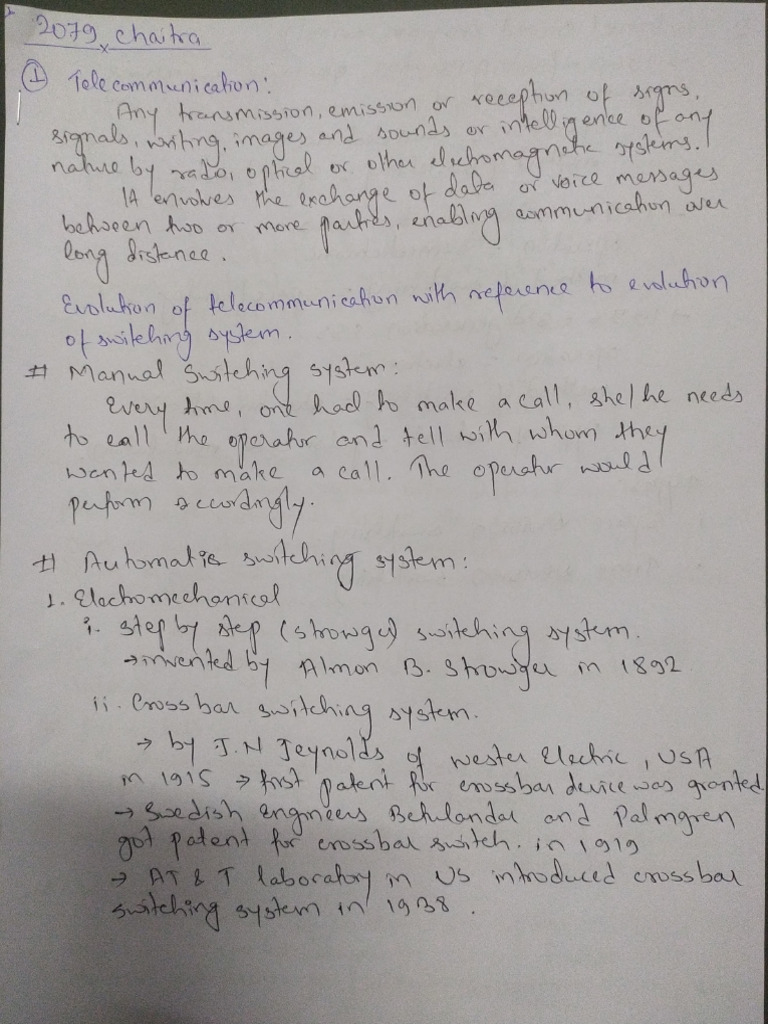 2079 chaitra
① Telecommunication:
Any transmission, emission or reception of signs,
signals, writing, images and sounds or intelligence of any
nature by radio, optical or other electromagnetic systems.
It envolves the exchange of data or voice messages
between two or more parties, enabling communication over
long distance.
Evolution of telecommunication with reference to evolution
of switching system.
# Manual switching system:
Every time, one had to make a call, she/he needs
to call the operator and tell with whom they
wanted to make a call. The operator would
perform accordingly.
# Automatic switching system:
1. Electromechanical
i. step by step (strowger) switching system.
→ invented by Almon B. Strowger in 1892
ii. Crossbar switching system.
→ by J.N Jeynolds of wester Electric, USA
in 1915 → first patent for crossbar device was granted.
→ Swedish engineers Betulandar and Palmgren
got patent for crossbar switch. in 1919
→ AT & T laboratory in US introduced crossbar
switching system in 1938.